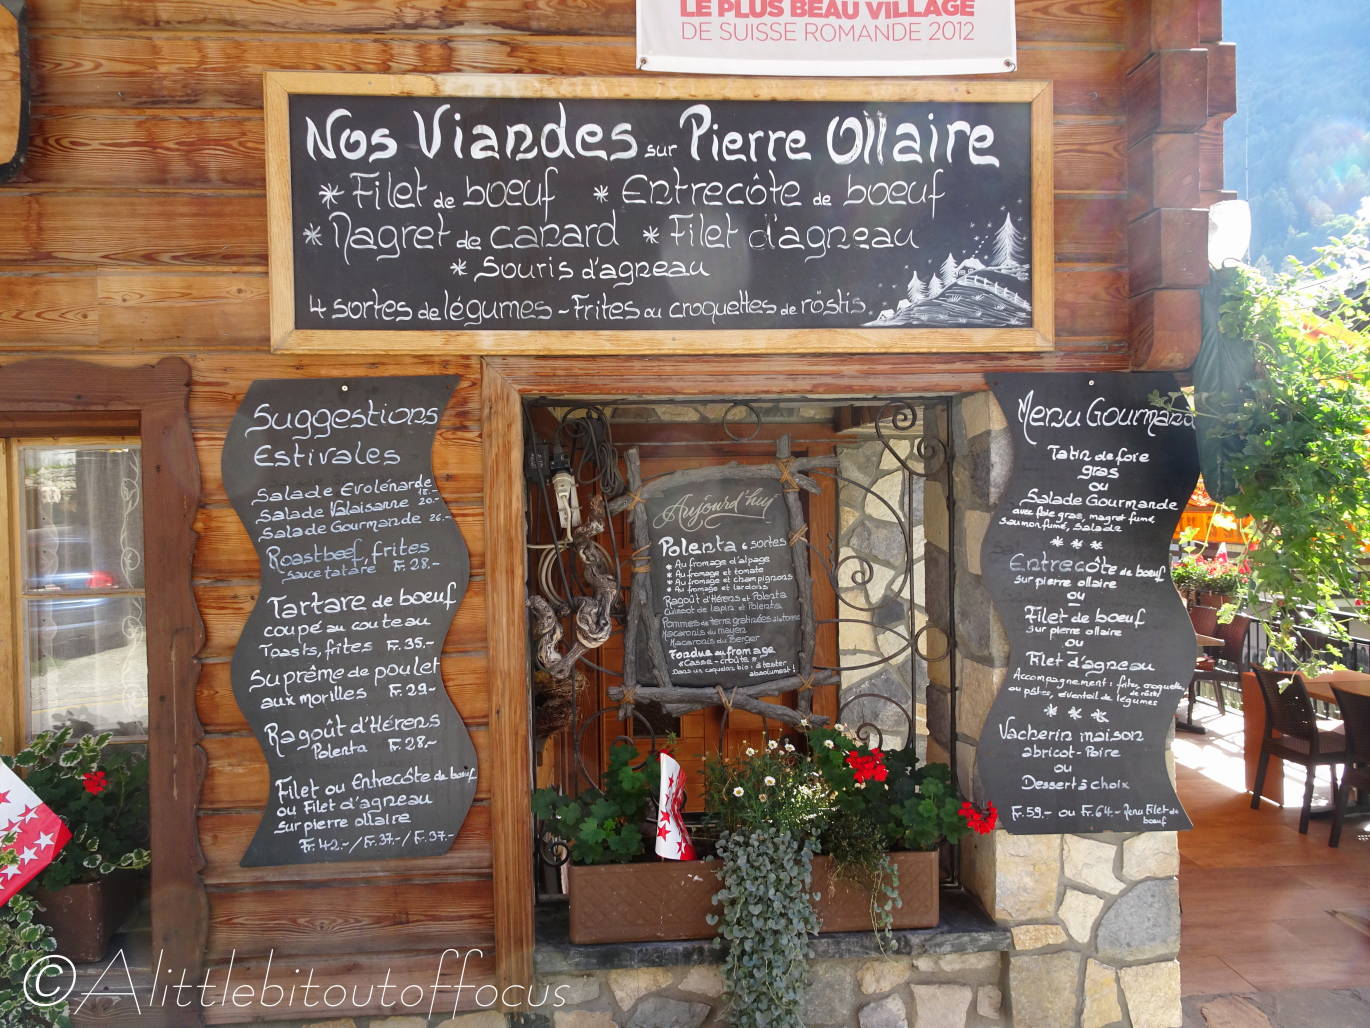 LE PLUS BEAU VILLAGE
DE SUISSE ROMANDE 2012
Nos Viandes sur Pierre Ollaire
* Filet de boeuf * Entrecôte de boeuf
* Magret de canard * Filet d'agneau
* Souris d'agneau
4 sortes de légumes - Frites ou croquettes de röstis
Suggestions
Estivales
Salade Evolénarde 18.-
Salade Valaisanne 20.-
Salade Gourmande 26.-
Roastbeef, frites
sauce tatare Fr. 28.-
Tartare de boeuf
coupé au couteau
Toasts, frites Fr. 35.-
Suprême de poulet
aux morilles Fr. 29.-
Ragoût d'Hérens
Polenta Fr. 28.-
Filet ou Entrecôte de boeuf
ou Filet d'agneau
sur pierre ollaire
Fr. 42.- / Fr. 37.- / Fr. 37.-
Aujourd'hui
Polenta 6 sortes
* Au fromage d'alpage
* Au fromage et tomate
* Au fromage et champignons
* Au fromage et lardons
Ragoût d'Hérens et Polenta
Cuissot de lapin et Polenta
Pommes de terre gratinées à la tomme
Macaronis du mayen
Macaronis du Berger
Fondue au fromage
"Casse-croûte"
Dans un caquelon bio: à tester
absolument!
Menu Gourmand
Tatin de foie
gras
ou
Salade Gourmande
avec foie gras, magret fumé
saumon fumé, salade
* * *
Entrecôte de boeuf
sur pierre ollaire
ou
Filet de boeuf
sur pierre ollaire
ou
Filet d'agneau
Accompagnement: frites, croquettes
de rösti
ou pâtes, éventail de légumes
* * *
Vacherin maison
abricot-Poire
ou
Dessert à choix
Fr. 59.- ou Fr. 64.- Menu Filet de
boeuf
© Alittlebitoutoffocus